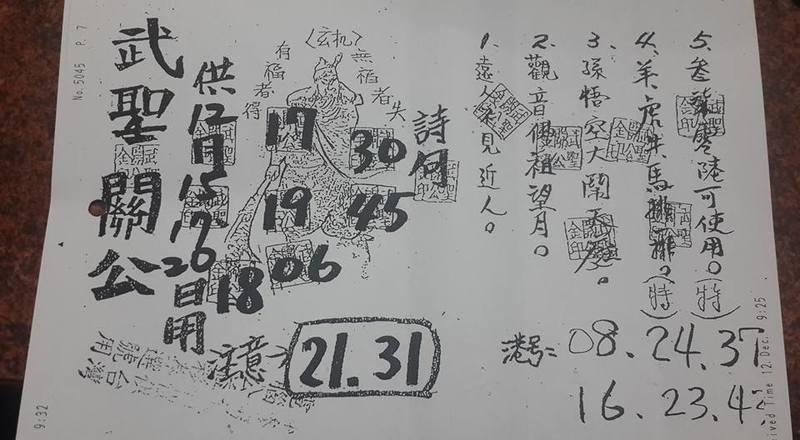 No. 5045 P. 7
武聖關公
供12月15 17 20日用
〈玄机〉
有福者得
無福者失
17
30
19
45
18
06
注意
21.31
詩句
1. 遠人未見近人。
2. 觀音佛祖望月。
3. 孫悟空大鬧天宮。
4. 羊虎牛馬排排。(特)
5. 叁 零陸可使用。(特)
港号:
08.24.37
16.23.4
9:32
ived Time 12. Dec. 9:25